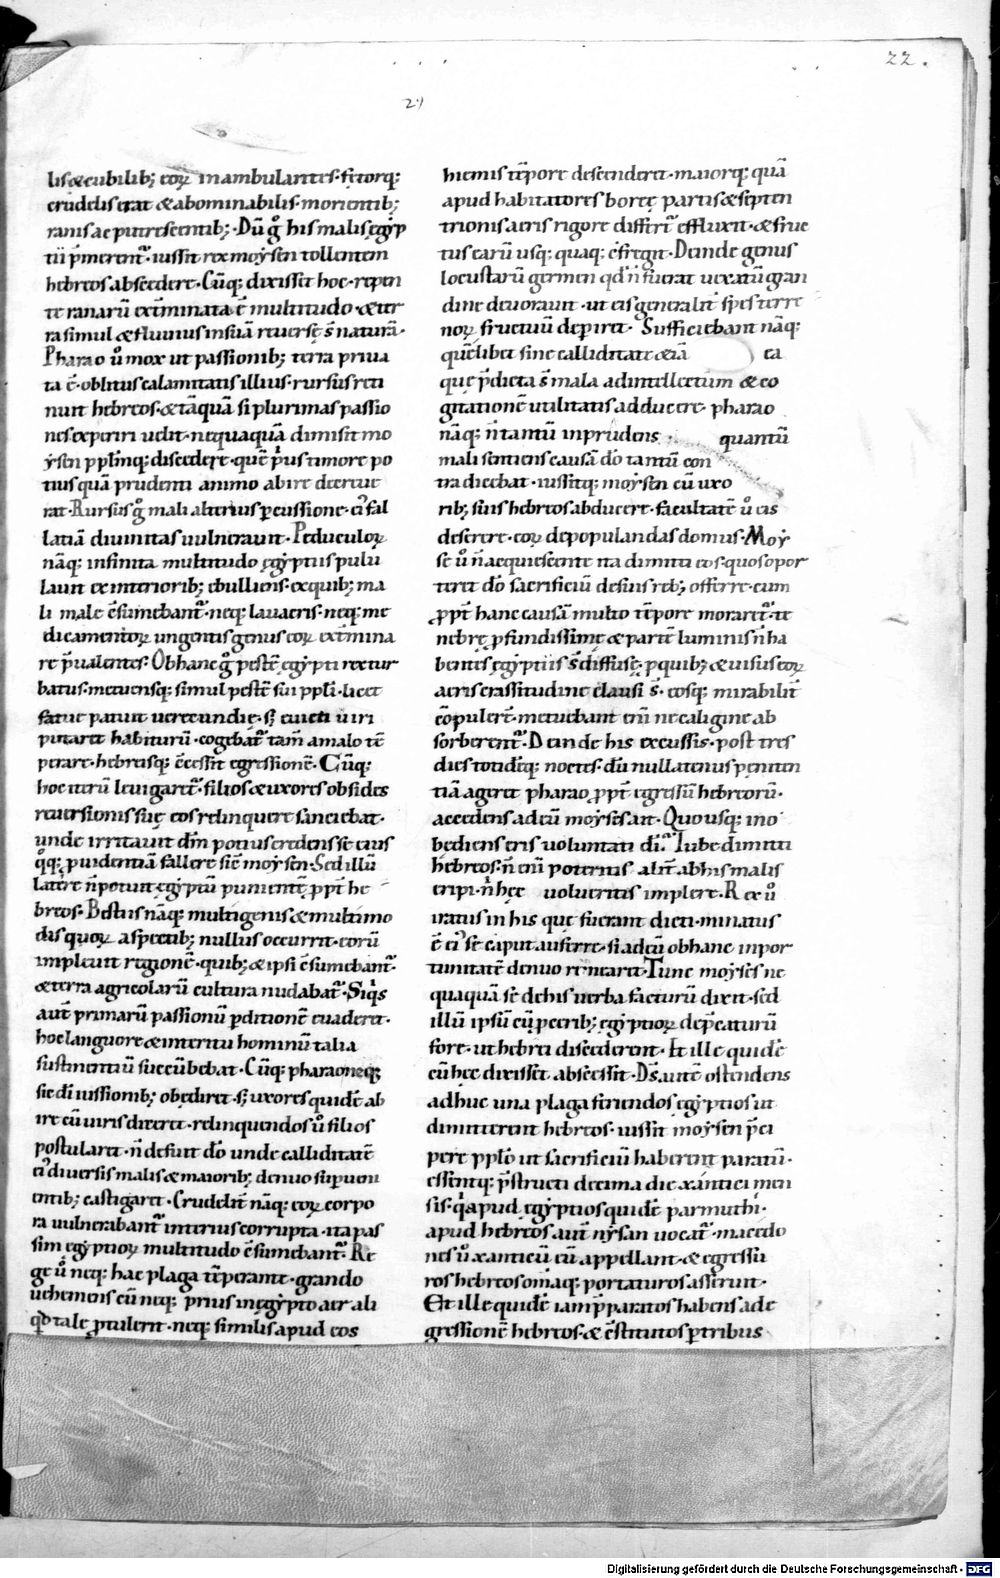 22.
21
lis & cubilib; eoꝝ inambulantes. fetorq;
crudelis erat & abominabilis. morientib;
ranis ac putrescentib;. Dū g° his malis ęgyp
tii p̄merent᷑. iussit rex moysen tollentem
hebreos abscedere. Cūq; dixisset hoc. repen
te ranarū extminata ē multitudo. & ter
ra simul & fluuius in suā reuersę s̄ naturā.
Pharao u° mox ut passionib; terra priua
ta ē. oblitus calamitatis illius. rursus reti
nuit hebreos. & tāquā si plurimas passio
nes experiri uelit. nequaquā dimisit mo
ysen pplinq; discedere. quē p'us timore po
tius quā prudenti animo abire decreue
rat. Rursus g° mali alterius p̱cussione. ei' fal
latiā diuinitas uulnerauit. Peduculoꝝ
nāq; infinita multitudo ęgyptiis pulu
lauit ex interiorib; ebulliens. ex quib; ma
li male c̄sumebant᷑. neq; lauacris. neq; me
dicamentoꝝ ungentis genus eoꝝ extmina
re p̄ualentes. Ob hanc g° pestē ęgypti rex tur
batus. metuensq; simul pestē sui ppli. licet
uerecundię. sꝫ euicti uiri
putaret habiturū. cogebat᷑ tam̄ a malo tē
perare. hebreisq; c̄cessit egressionē. Cūq;
hoc iterū leuigaret᷑. filios & uxores obsides
reuersionis suę eos relinquere sanciebat.
unde irritauit dm̄ potius credens se eius
q°q; puidentiā fallere sic̄ moysen. Sed illū
latere n̄ potuit ęgyptū punientē ppt he
breos. Bestiis nāq; multigenis & multimo
dis quoꝝ aspectib; nullus occurrit. eorū
impleuit regionē. quib; & ipsi c̄sumebant᷑.
& terra agricolarū cultura nudabat᷑. Siq's
aut̄ primarū passionū p̱ditionē euaderet.
hoc languore & interitu hominū talia
sustinentiū succūbebat. Cūq; pharao neq;
sic dī iussionib; obediret. sꝫ uxores quidē ab
ire cū uiris diceret. relinquendos u° filios
postularet. n̄ defuit dō unde calliditatē
ei' diuersis malis & maiorib; denuo supueni
entib; castigaret. Crudelit̄ nāq; eoꝝ corpo
ra uulnerabant᷑ interius corrupta. ita pas
sim ęgyptioꝝ multitudo c̄sumebant᷑. Re
ge u° neq; hac plaga tēperante. grando
uehemens cū neq; prius in egypto aer ali
qd tale ptulerit. neq; similis apud eos
hiemis tēpore descenderet. maiorq; quā
apud habitatores boreę partis & septen
trionis aeris rigore differt᷑ effluxit. & fruc
tus earū usq; quaq; c̄fregit. Deinde genus
locustarū germen qd n̄ fuerat uexatū gran
dine deuorauit. ut eis generalit̄ spes terre
noꝝ fructuū depiret. Sufficiebant nāq;
quēlibet sine calliditate & iā ea
que p̄dicta s̄ mala ad intellectum & co
gitationē utilitatis adducere. pharao
nāq; n̄ tantū inprudens. quantū
mali sentiens causā dō tantū con
tradicebat. iussitq; moysen cū uxo
rib; suis hebreos abducere. facultatē u° eis
deserere. eoꝝ depopulandas domus. Moy
se u° n̄ adquiescente ita dimitti eos. quos opor
teret dō sacrificiū de suis reb; offerre. cum
ppt hanc causā multo tēpore moraret᷑. te
nebrę pfundissimę & partē luminis n̄ ha
bentes ęgyptiis s̄ diffusę. p quib; & uisus eoꝝ
aeris crassitudine clausi s̄. eosq; mirabilit̄
cōpuleret. metuebant eni ne caligine ab
sorberent᷑. Deinde his excussis. post tres
dies totidēq; noctes. dū nullatenus peniten
tiā ageret pharao ppt egressū hebreorū.
accedens ad eū moyses ait. Quo usq; ino
bediens eris uoluntati dī? Iube dimitti
hebreos. n̄ eni poteritis alit̄ ab his malis
eripi. n' hęc uolueritis implere. Rex u°
iratus in his que fuerant dicti. minatus
ē ei' se caput auferre. si ad eū ob hanc inpor
tunitatē denuo remearet. Tunc moyses ne
quaquā se de his uerba facturū dixit. sed
illū ipsū cū pcerib; egyptioꝝ dep̄caturū
fore. ut hebrei discederent. Et ille quidē
cū hęc dixisset abscessit. Ds̄ autē ostendens
adhuc una plaga feriendos ęgyptios ut
dimitterent hebreos. iussit moysen p̄ci
pere pplo ut sacrificiū haberent paratū.
essentq; p̄structi decima die xantici men
sis. q'apud egyptios quidē parmuthi.
apud hebreos aut̄ nysan uocat᷑. macedo
nes u° xanticū eū appellant. & egressu
ros hebreos omaq; portaturos asserunt.
Et ille quidē iam p̄paratos habens ad e
gressionē hebreos. & c̄stitutos p tribus
Digitalisierung gefördert durch die Deutsche Forschungsgemeinschaft - DFG